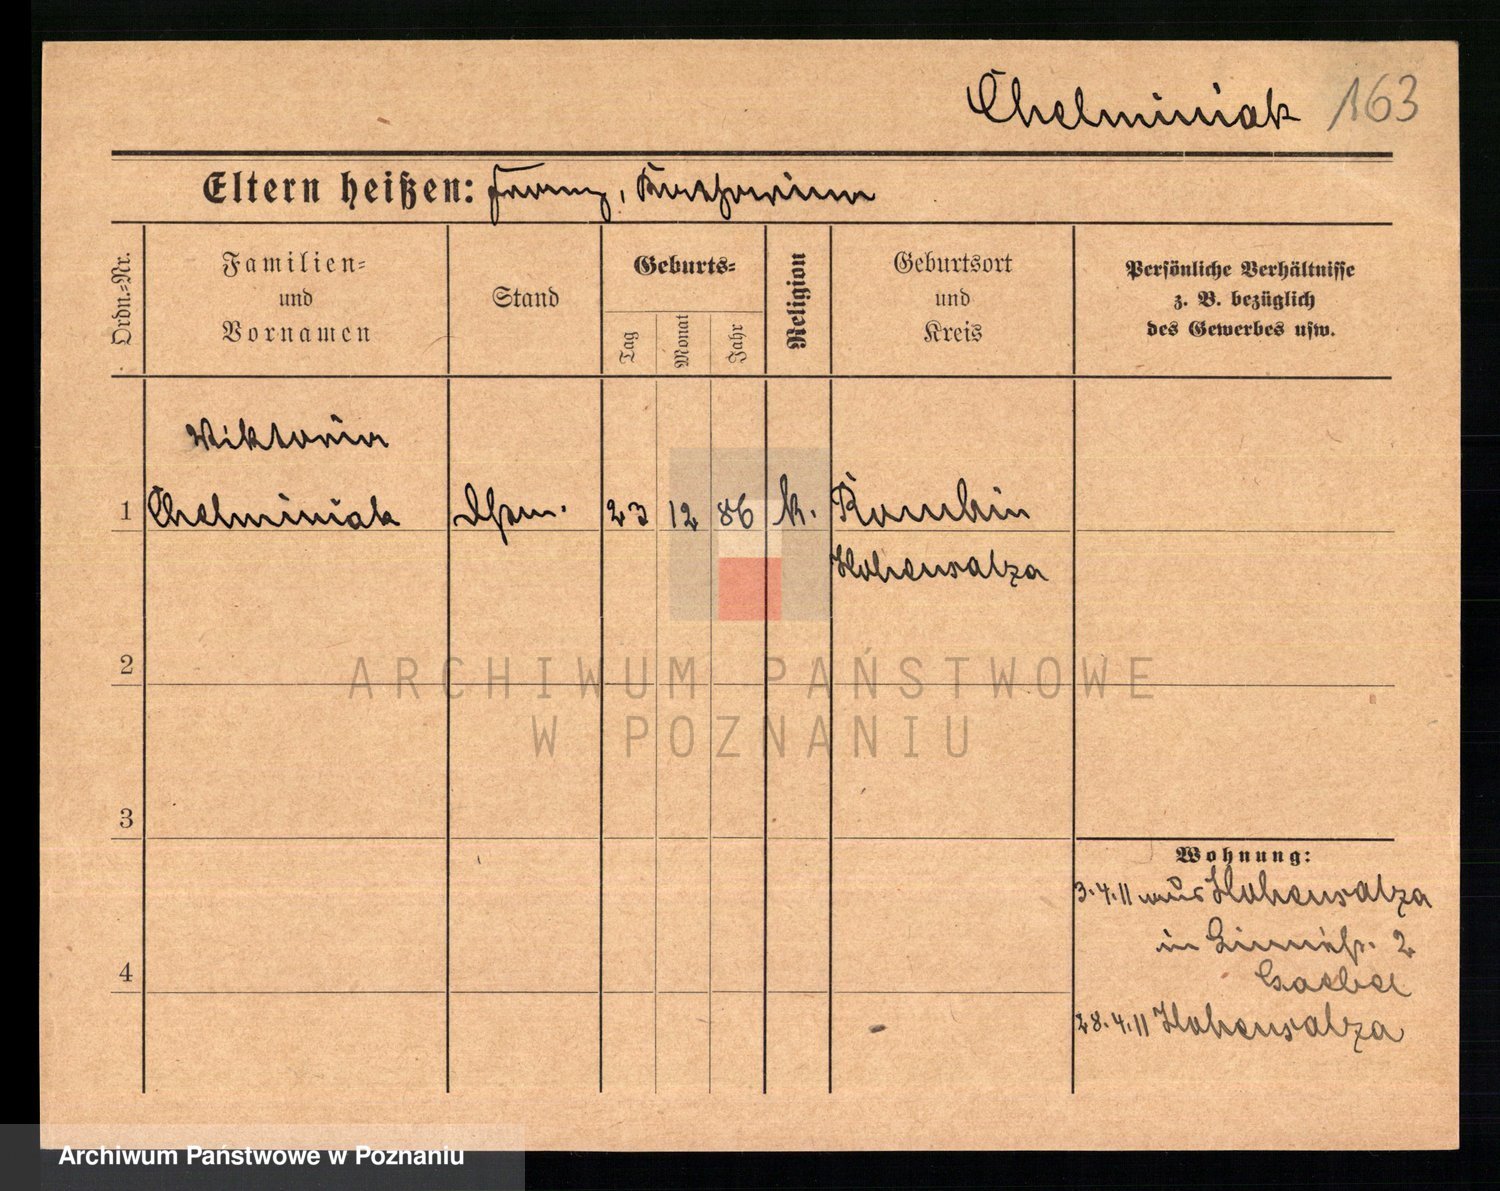 Chelminiak 163
Eltern heißen: Franz, Katharina
Ordn.=Nr.
Familien=
und
Vornamen
Stand
Geburts=
Tag
Monat
Jahr
Religion
Geburtsort
und
Kreis
Persönliche Verhältnisse
z. B. bezüglich
des Gewerbes usw.
Wiktoria
1 Chelminiak 23 12 86 k.
Hohensalza
2
3
4
Wohnung:
3.4.11 aus Hohensalza
in 2
28.4.11 Hohensalza
ARCHIWUM PAŃSTWOWE
W POZNANIU
Archiwum Państwowe w Poznaniu